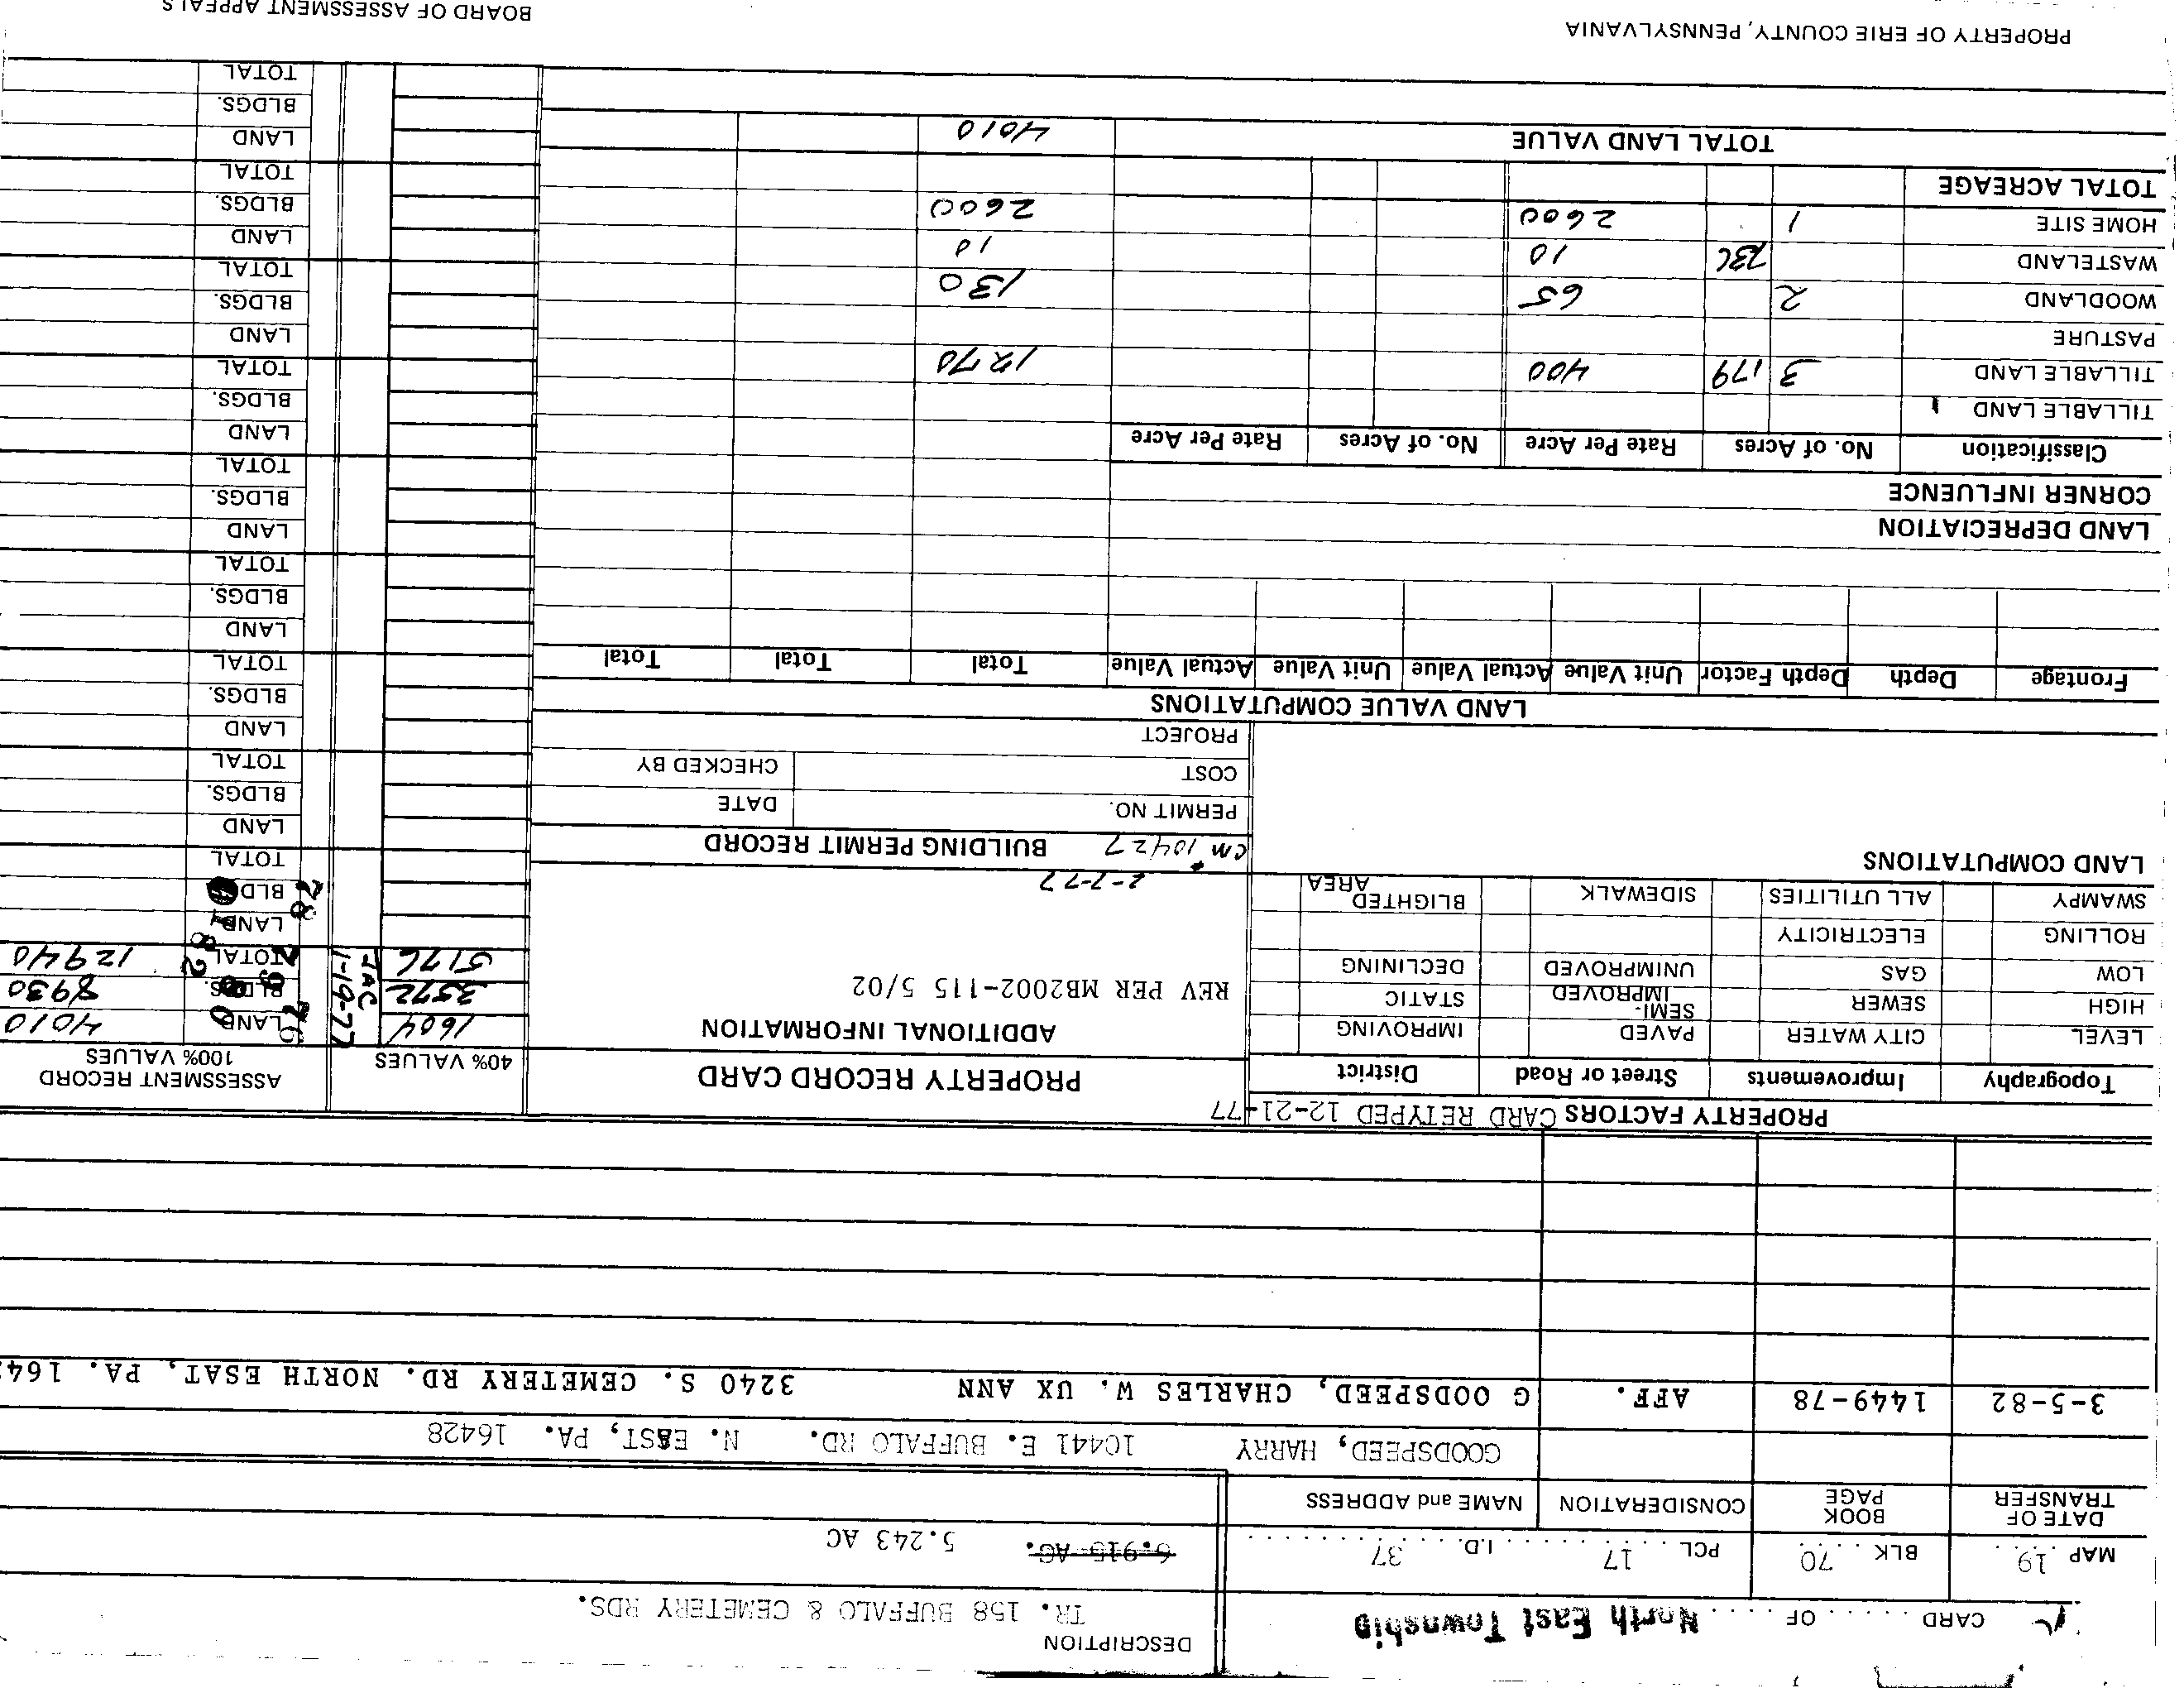 CARD ...... OF .... North East Township
DESCRIPTION
TR. 158 BUFFALO & CEMETERY RDS.
MAP 19 BLK 70 PCL 17 I.D. 37
6.915 AC. 5.243 AC
DATE OF TRANSFER BOOK PAGE CONSIDERATION NAME and ADDRESS
GOODSPEED, HARRY 10441 E. BUFFALO RD. N. EAST, PA. 16428
3-5-82 1449-78 AFF. G OODSPEED, CHARLES W. UX ANN 3240 S. CEMETERY RD. NORTH ESAT, PA.
PROPERTY FACTORS CARD RETYPED 12-21-77
Topography Improvements Street or Road District
LEVEL CITY WATER PAVED IMPROVING
HIGH SEWER SEMI-IMPROVED STATIC
LOW GAS UNIMPROVED DECLINING
ROLLING ELECTRICITY
SWAMPY ALL UTILITIES SIDEWALK BLIGHTED AREA
LAND COMPUTATIONS
PROPERTY RECORD CARD
ADDITIONAL INFORMATION
REV PER MB2002-115 5/02
2-7-77
CM #10427 BUILDING PERMIT RECORD
PERMIT NO. DATE
COST CHECKED BY
PROJECT
40% VALUES ASSESSMENT RECORD 100% VALUES
1604 JAC 1-19-77 76 LAND 4010
3572 BLDGS. 8930
5176 TOTAL 12940
LAND
BLD
TOTAL
LAND
BLDGS.
TOTAL
LAND
BLDGS.
TOTAL
LAND
BLDGS.
TOTAL
LAND
BLDGS.
TOTAL
LAND
BLDGS.
TOTAL
LAND
BLDGS.
TOTAL
LAND
BLDGS.
TOTAL
LAND
BLDGS.
TOTAL
LAND VALUE COMPUTATIONS
Frontage Depth Depth Factor Unit Value Actual Value Unit Value Actual Value Total Total Total
LAND DEPRECIATION
CORNER INFLUENCE
Classification No. of Acres Rate Per Acre No. of Acres Rate Per Acre
TILLABLE LAND
TILLABLE LAND 3 179 400 1270
PASTURE
WOODLAND 2 65 130
WASTELAND 736 10 10
HOME SITE 1 2600 2600
TOTAL ACREAGE
TOTAL LAND VALUE 4010
PROPERTY OF ERIE COUNTY, PENNSYLVANIA
BOARD OF ASSESSMENT APPEALS